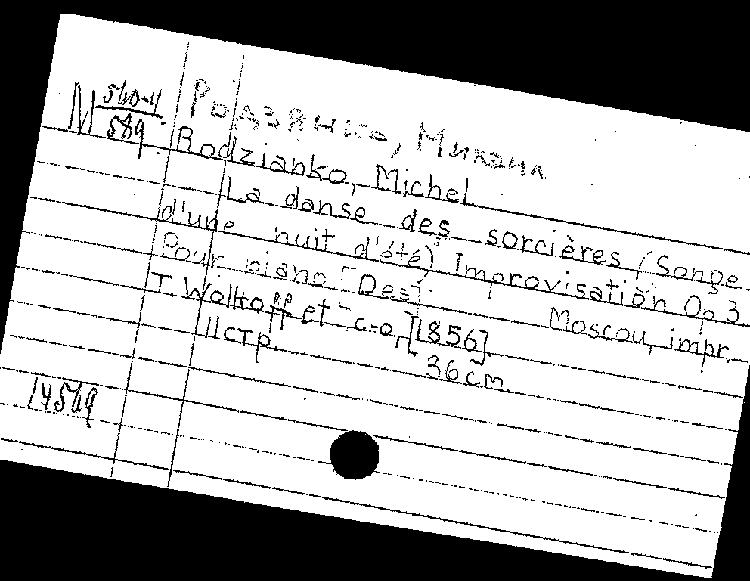 М 540-4/589
Родзянко, Михаил
Rodzianko, Michel
La danse des sorcières (Songe
d'une nuit d'été) Improvisation Op 3
Pour piano [Des].
Moscou, impr.
T Wolkoff et c-o, [1856]
11 стр. 36 cm.
14589